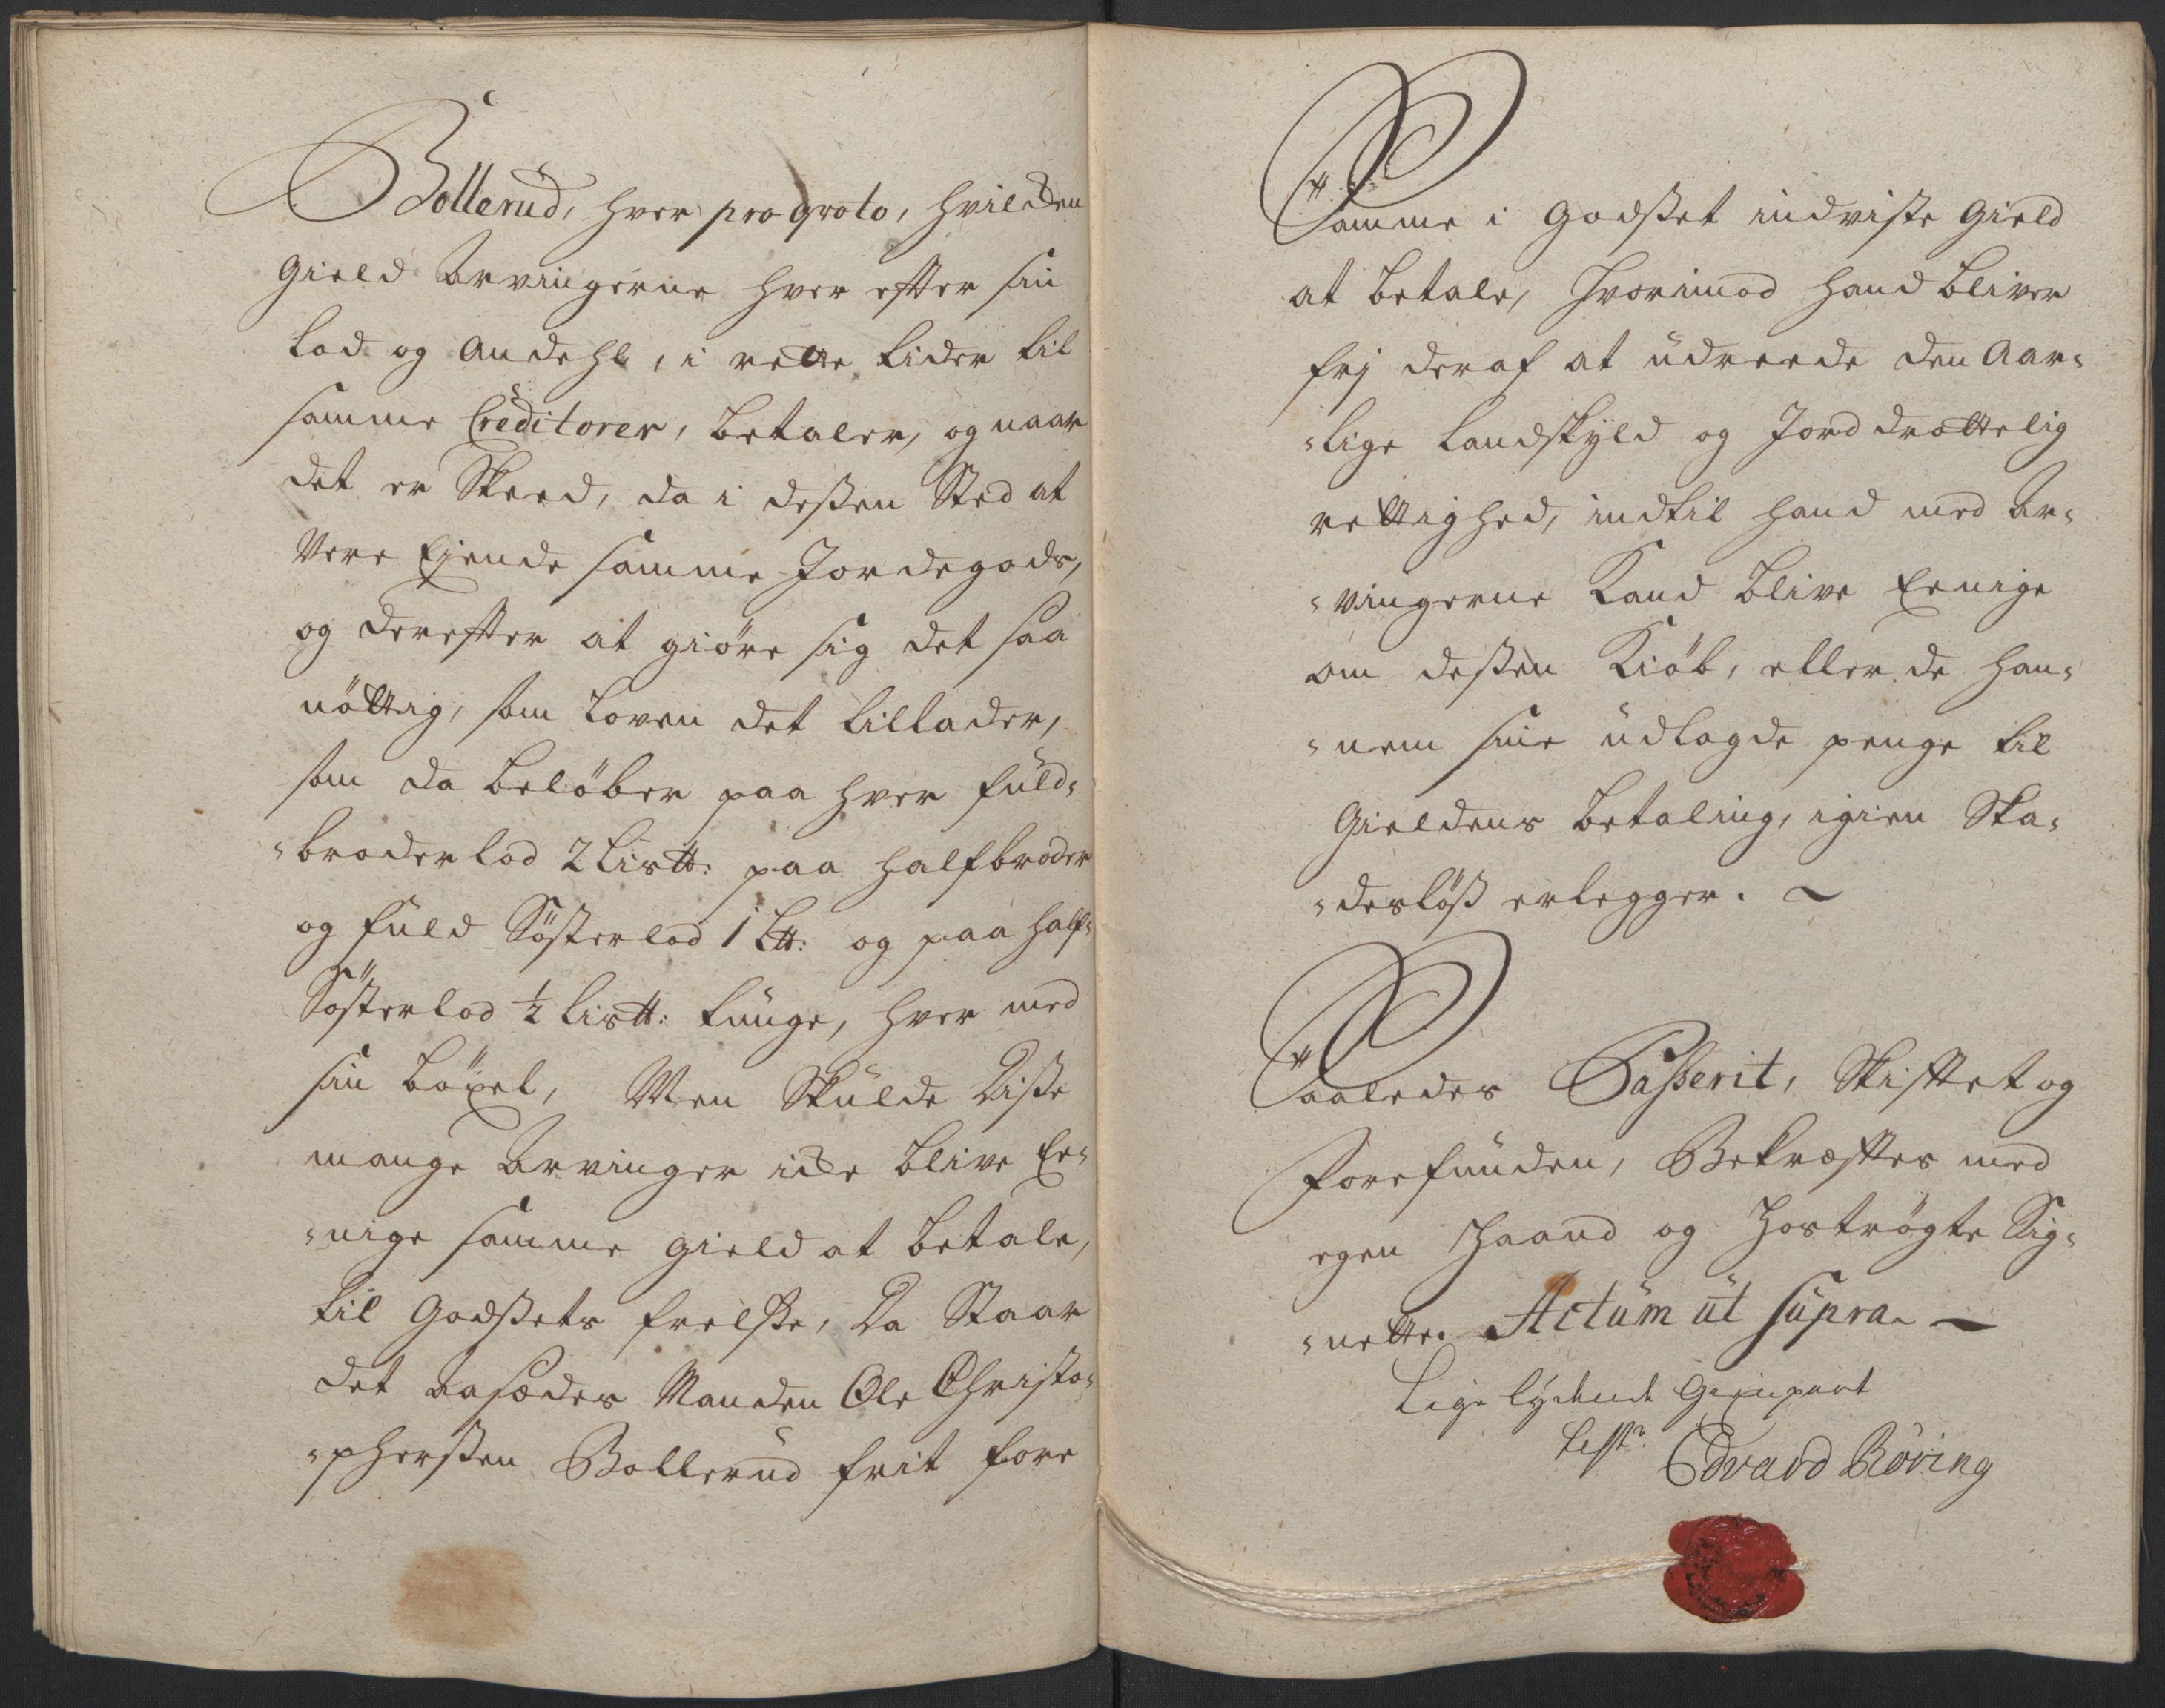 Bollerud, hver pro qvoto, hvilcken
Gield Arvingerne hver effter sin
Lod og Andehl, i rette tider til
samme Creditorer, betaler, og naar
det er Skeed, da i deßen Sted at
Være Ejende samme Jordegods,
og dereffter at giöre sig det saa
nöttig, som Loven det tillader,
som da belöber paa hver fuld=
=broder lod 2 Lis℔: paa halfbroder
og fuld Söster lod 1 L℔: og paa half=
Söster lod ½ Lis℔: tunge, hver med
sin böxel, Men Skulde Diße
mange Arvinger icke blive Ee=
=nige samme gield at betale,
til Godßets frelße, Da Staar
det Aasædes Manden Ole Christo=
=pherßen Bollerud frit fore
Samme i Godßet indviste Gield
at betale, hvorimod hand bliver
frj deraf at udreede den Aar=
=lige Landskyld og Jorddrottelig
rettighed, indtil hand med Ar=
=vingerne Kand blive Eenige
om deßen Kiöb, eller de han=
=nem sine udlagde penge til
Gieldens betaling, igien Ska=
=deslöß erlegger.
Saaledes Paßerit, Skifftet og
Forefunden, Bekræfftes med
egen Haand og hoströgte Sig=
=nette. Actum ut supra.
Lige lydende Gienpart
test:
Edvard Röring